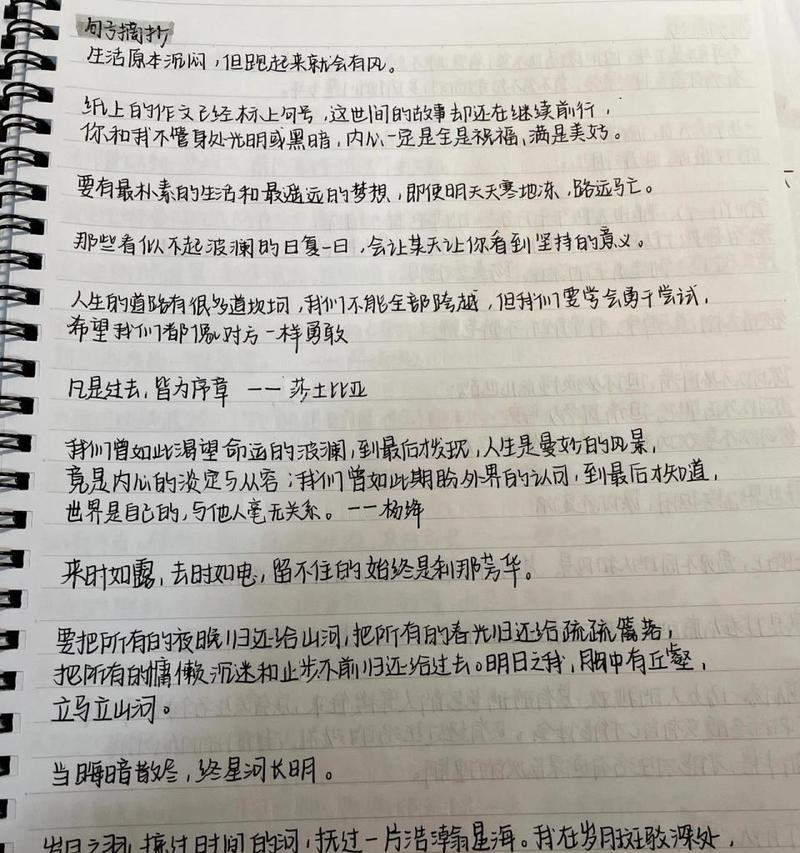 句子摘抄
生活原本沉闷，但跑起来就会有风。
纸上的作文已经标上句号，这世间的故事却还在继续前行，
你和我不管身处光明或黑暗，内心一定是全是祝福，满是美好。
要有最朴素的生活和最遥远的梦想，即使明天天寒地冻，路远马亡。
那些看似不起波澜的日复一日，会让某天让你看到坚持的意义。
人生的道路有很多道坎坷，我们不能全部跨越，但我们要学会勇于尝试，
希望我们都像对方一样勇敢
凡是过去，皆为序章 —— 莎士比亚
我们曾如此渴望命运的波澜，到最后才发现，人生是曼妙的风景，
竟是内心的淡定与从容；我们曾如此期盼外界的认可，到最后才知道，
世界是自己的，与他人毫无关系。——杨绛
来时如露，去时如电，留不住的始终是刹那芳华。
要把所有的夜晚归还给山河，把所有的春光归还给疏疏篱落，
把所有的慵懒沉迷和止步不前归还给过去。明日之我，胸中有丘壑，
立马立山河。
当晦暗散尽，终星河长明。
岁月之羽，掠过时间的河，抚过一片浩瀚星海。我在岁月斑驳深处，